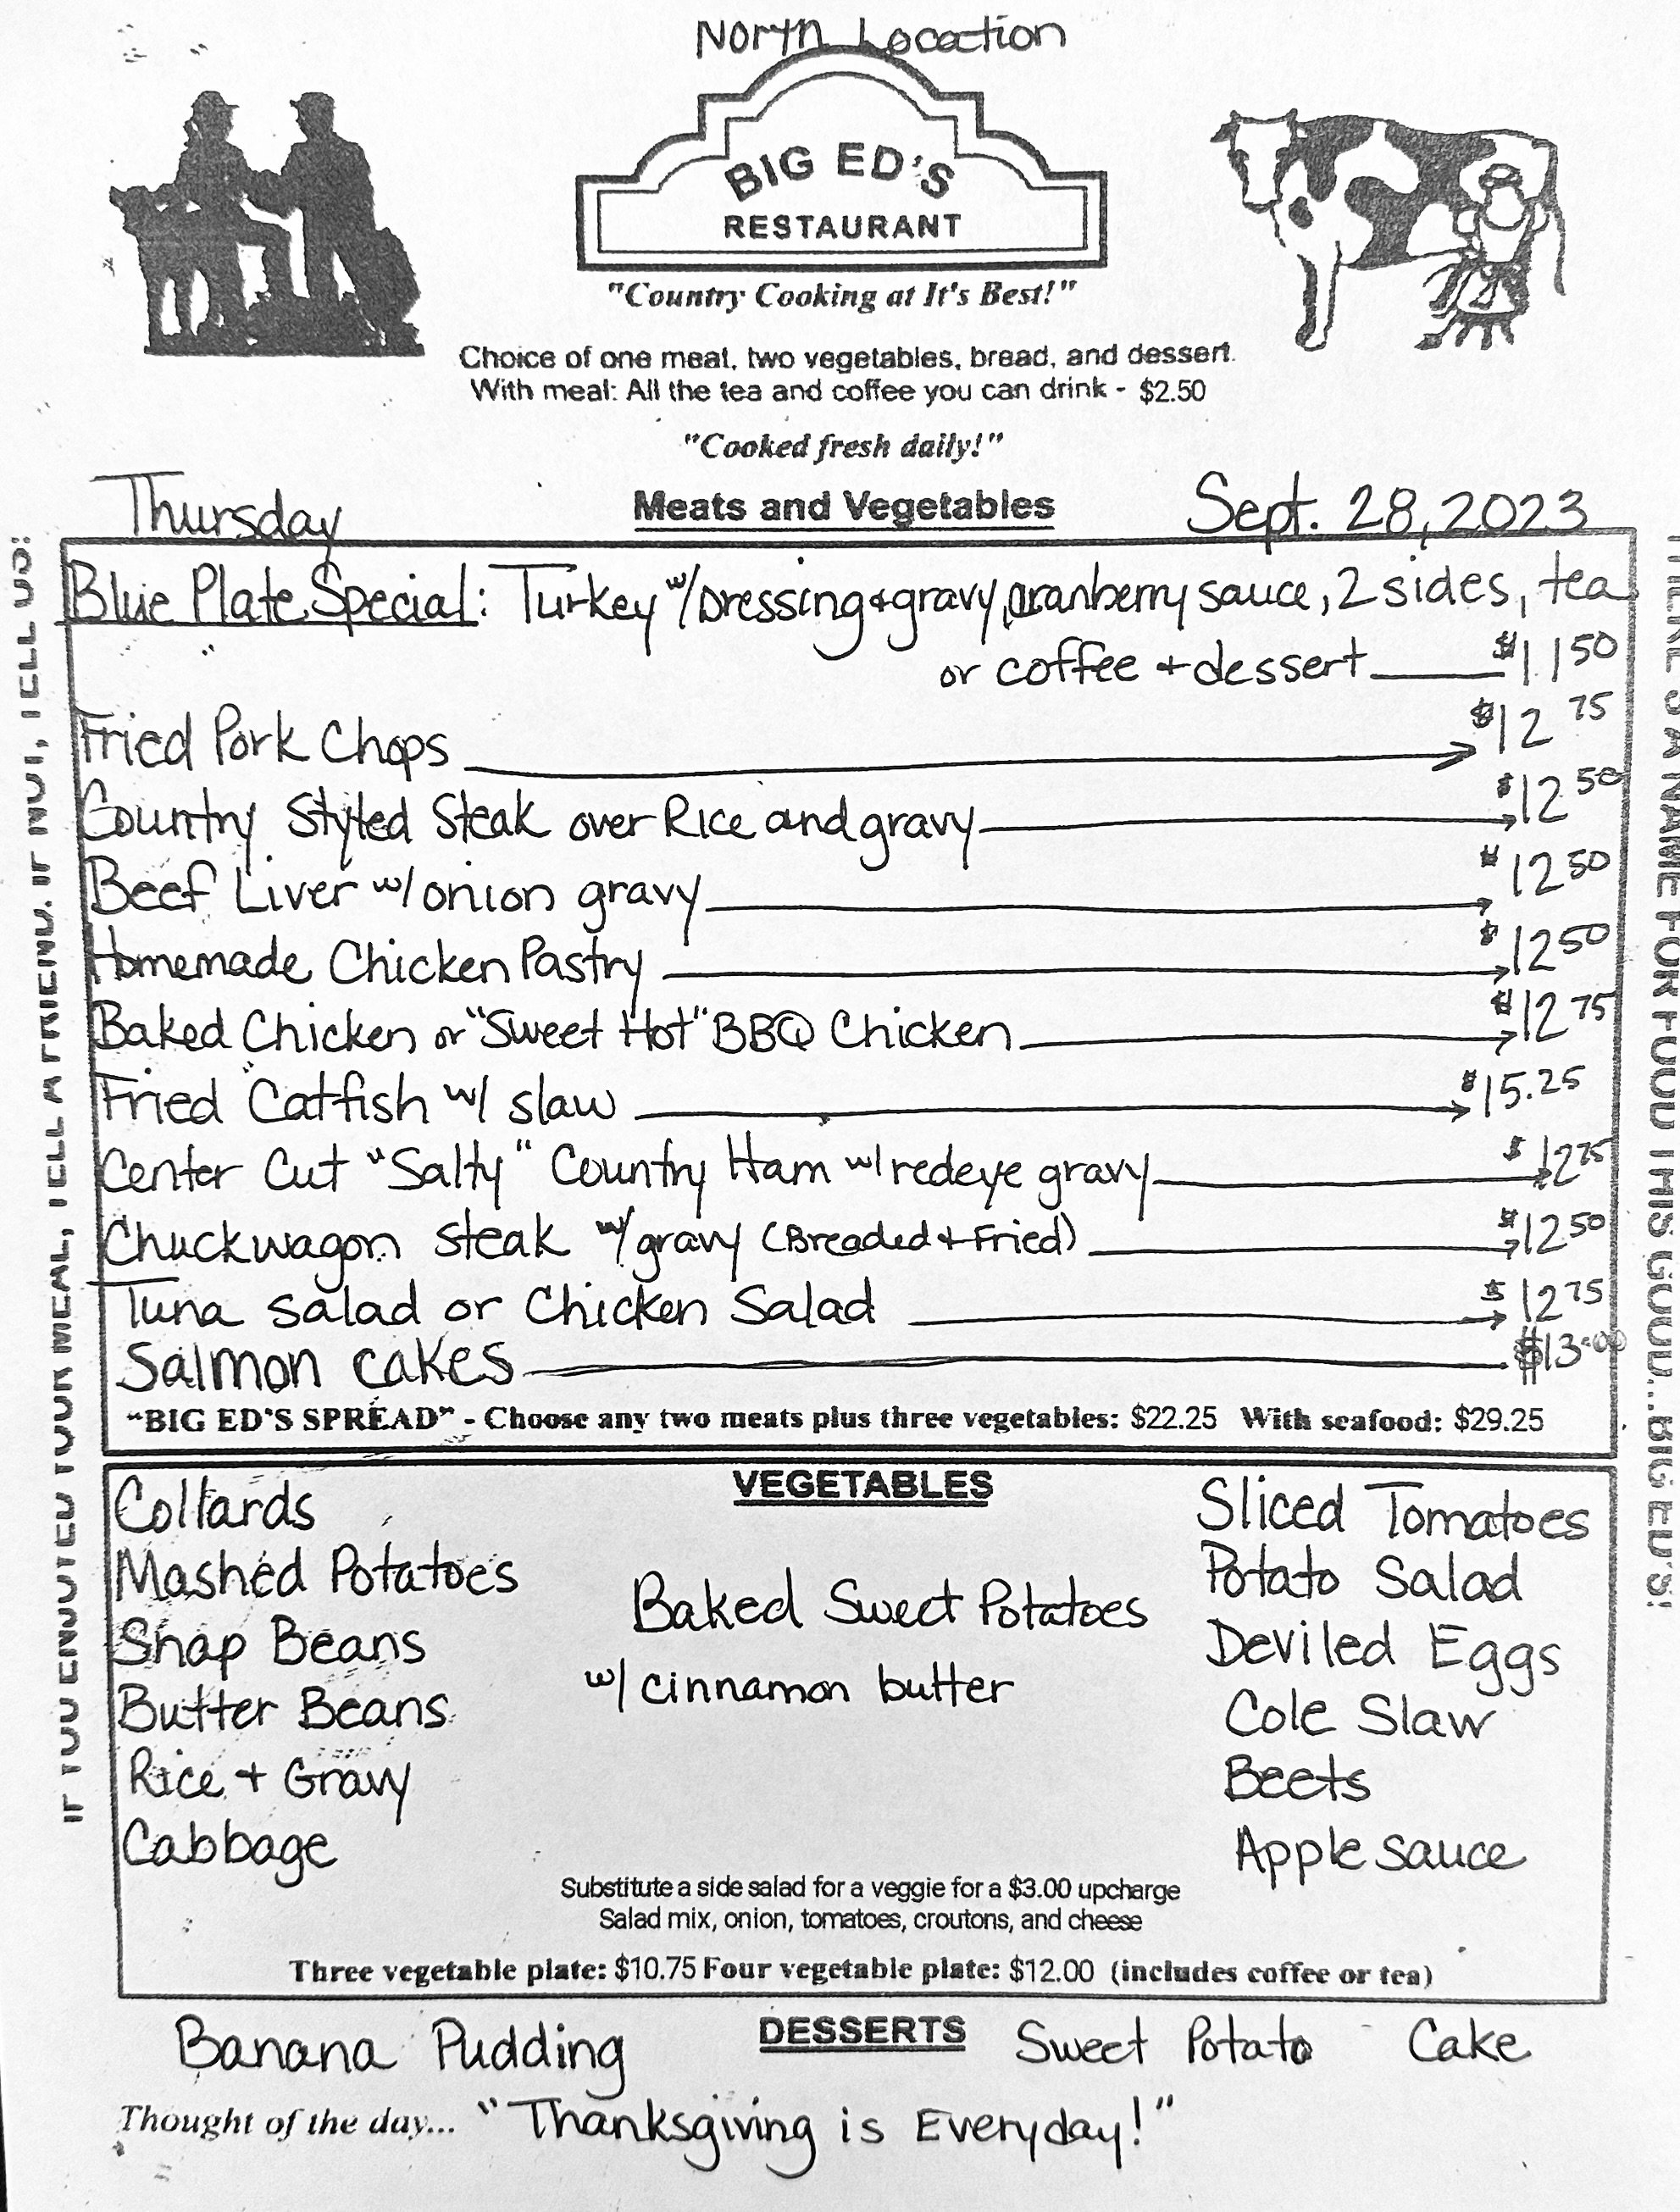 North Location
BIG ED'S
RESTAURANT
"Country Cooking at It's Best!"
Choice of one meat, two vegetables, bread, and dessert.
With meal: All the tea and coffee you can drink - $2.50
"Cooked fresh daily!"
Thursday
Meats and Vegetables
Sept. 28, 2023
Blue Plate Special: Turkey w/Dressing+gravy, cranberry sauce, 2 sides, tea
or coffee + dessert $11 50
Fried Pork Chops $12 75
Country Styled Steak over Rice and gravy $12 50
Beef Liver w/ onion gravy $12 50
Homemade Chicken Pastry $12 50
Baked Chicken or "Sweet Hot" BBQ Chicken $12 75
Fried Catfish w/ slaw $15.25
Center Cut "Salty" Country Ham w/ redeye gravy $12 75
Chuckwagon steak w/ gravy (Breaded + Fried) $12 50
Tuna salad or Chicken Salad $12 75
Salmon cakes $13.00
"BIG ED'S SPREAD" - Choose any two meats plus three vegetables: $22.25 With seafood: $29.25
VEGETABLES
Collards
Mashed Potatoes
Snap Beans
Butter Beans
Rice + Gravy
Cabbage
Baked Sweet Potatoes
w/ cinnamon butter
Sliced Tomatoes
Potato Salad
Deviled Eggs
Cole Slaw
Beets
Apple sauce
Substitute a side salad for a veggie for a $3.00 upcharge
Salad mix, onion, tomatoes, croutons, and cheese
Three vegetable plate: $10.75 Four vegetable plate: $12.00 (includes coffee or tea)
DESSERTS
Banana Pudding
Sweet Potato Cake
Thought of the day... "Thanksgiving is Everyday!"
IF YOU ENJOYED YOUR MEAL, TELL A FRIEND. IF NOT, TELL US!
THERE'S A NAME FOR FOOD THIS GOOD...BIG ED'S!